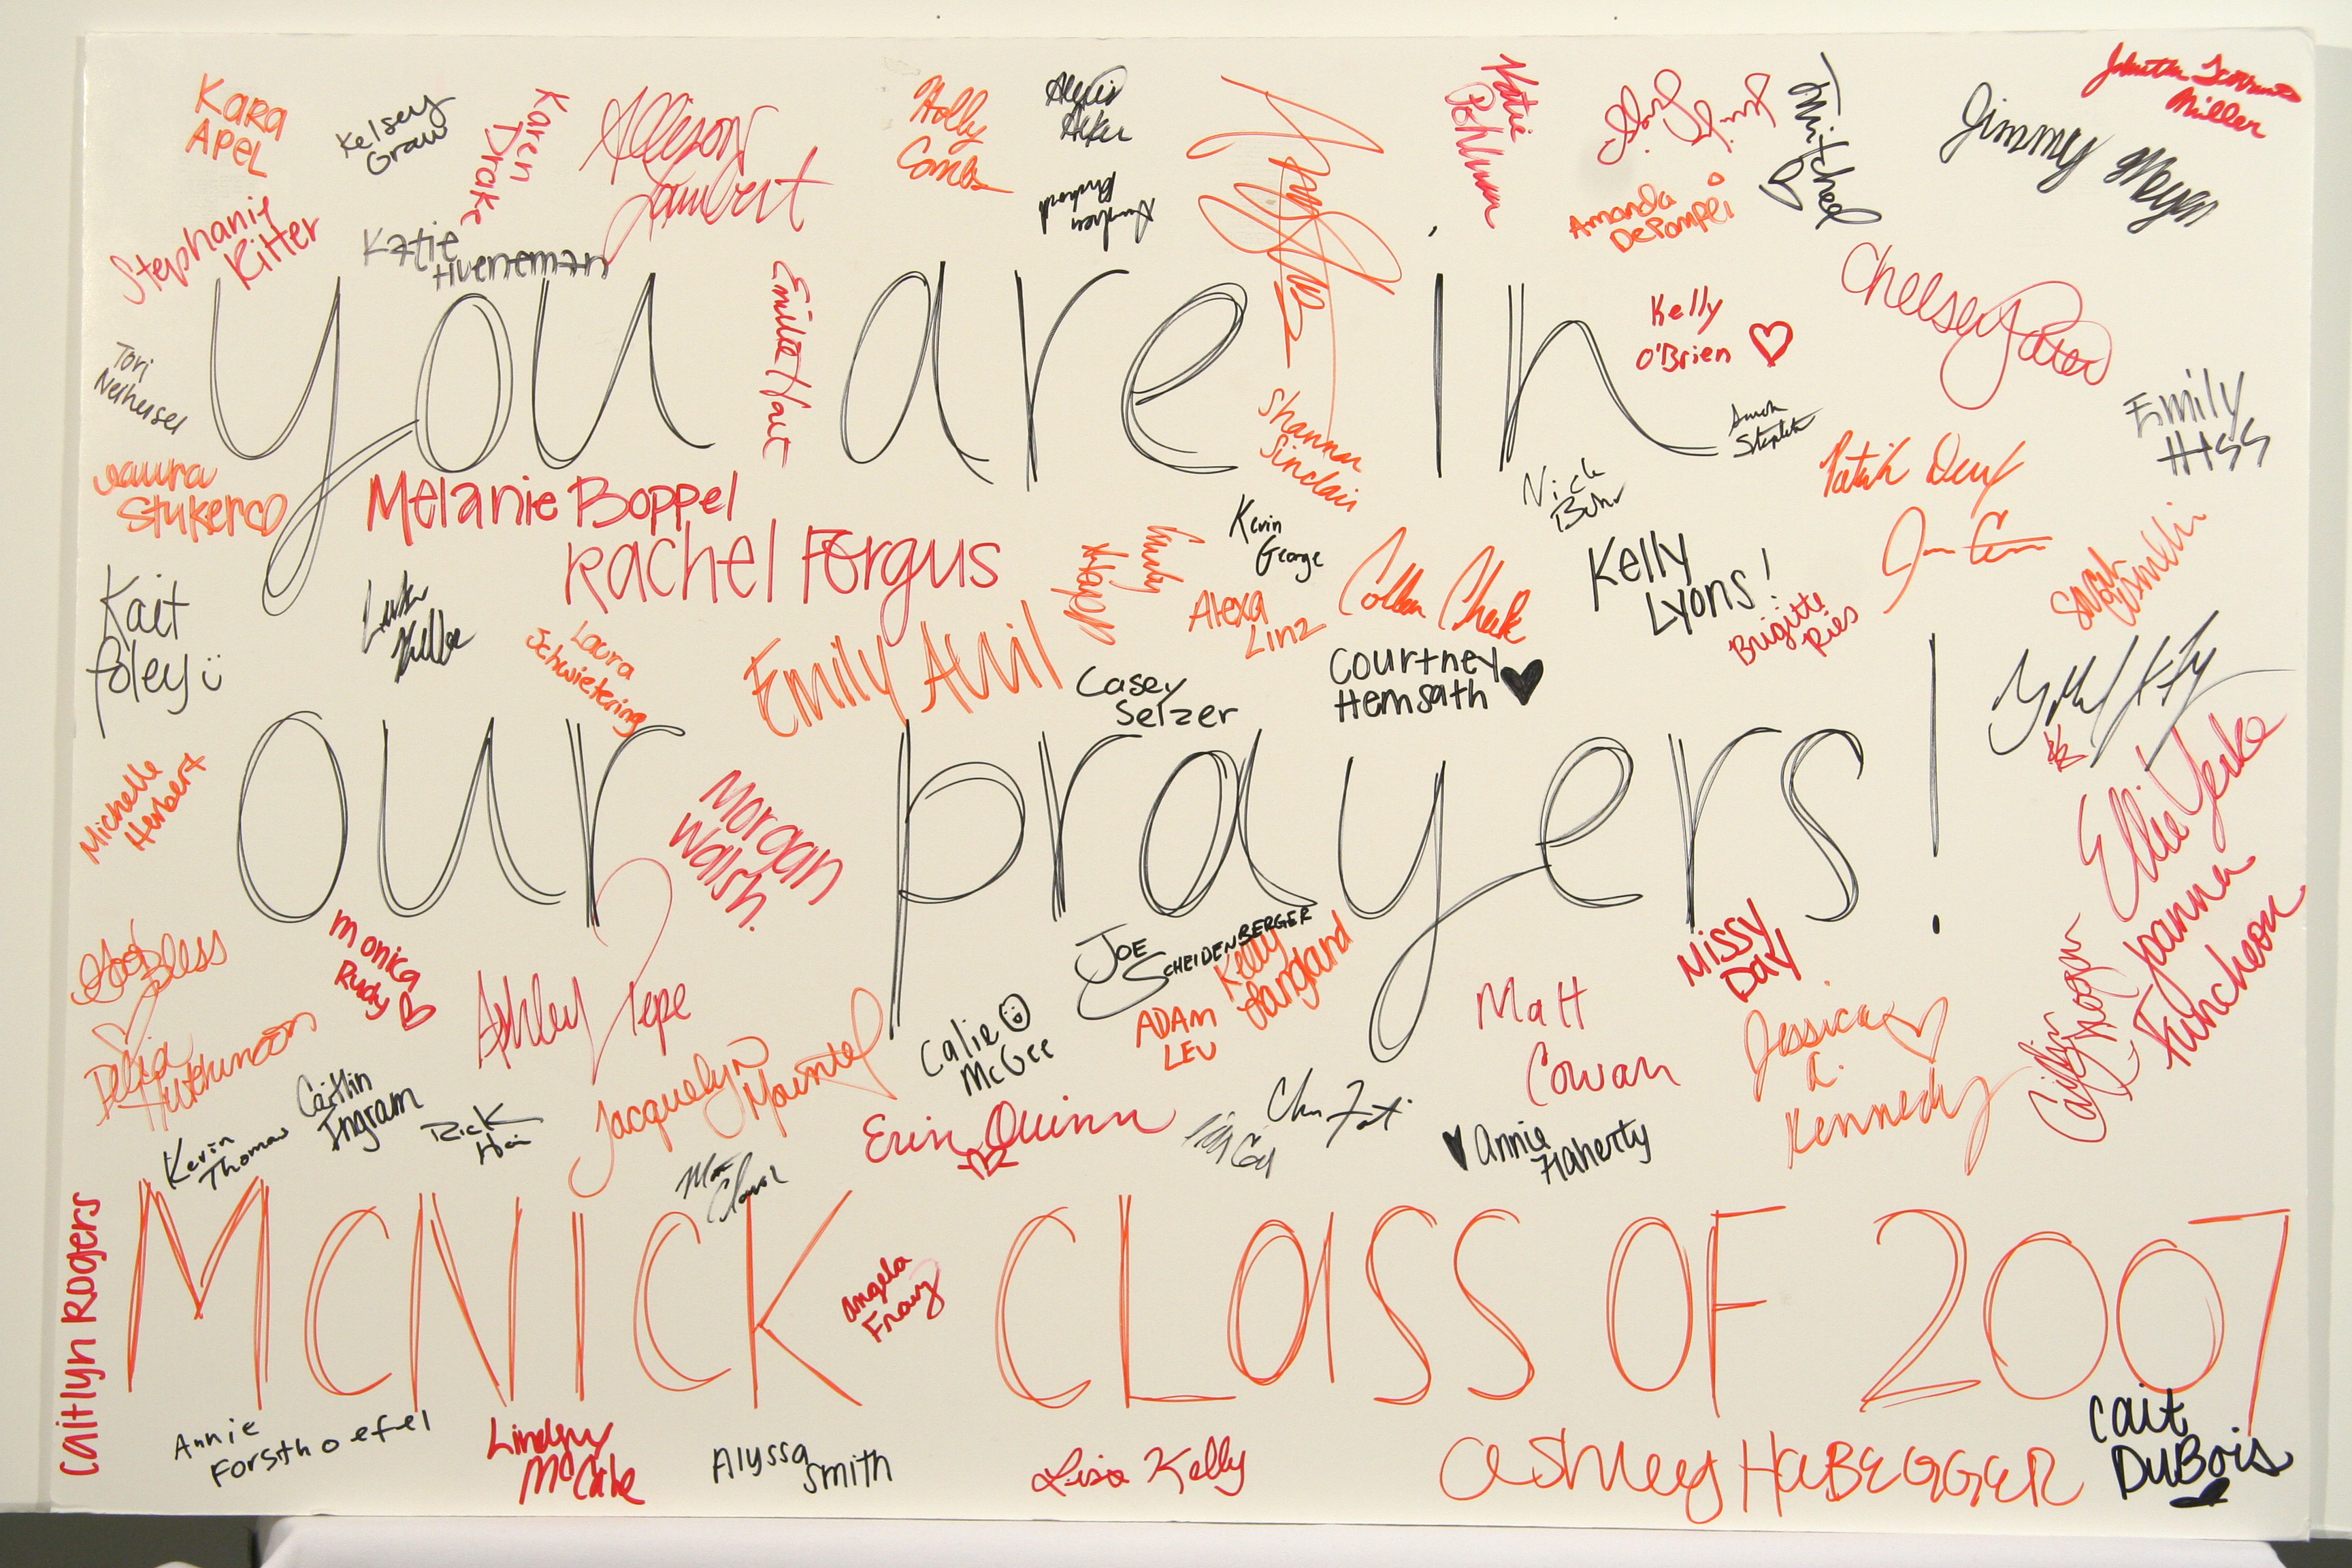 Kara
Apel
Kelsey
Graw
Karen
Drake
Allison
Lambert
Holly
Combs
Alexis
Katie
Pohlman
Mitchel
Jimmy
Miller
Stephanie
Kitter
Katie
Hueneman
Amanda
DePompei
you are in
Emilie Haut
Kelly
O'Brien
Chelsey
Tori
Shannon
Sinclair
Emily
Hiss
Laura
Stuker
Melanie Boppel
Rachel Fergus
Nick
Patrick
Kevin
George
Kait
foley
Luke
Laura
Schwietering
Emily Avril
Emily
Alexa
Linz
Colleen Cheek
Kelly
Lyons!
Brigitte
Ries
Sarah
Conklin
Casey
Selzer
Courtney
Hemsath
our prayers!
Michelle
Herbert
Morgan
Walsh.
Ellie Yerke
Joanna
Funcheon
God Bless
Monica
Rudy
Ashley Tepe
Joe
Scheidenberger
Kelly
Langland
Adam
Leu
Missy
Day
Matt
Cowan
Delia
Caitlin
Ingram
Jacquelyn
Mountel
Calie
McGee
Jessica
A.
Kennedy
Caitlin
Kevin
Thomas
Rick
Erin Quinn
Annie
Flaherty
Caitlyn Rogers
McNick Class of 2007
Angela
Annie
Forsthoefel
Lindsay
McCabe
Alyssa
Smith
Lisa Kelly
Ashley Habegger
Cait
DuBois